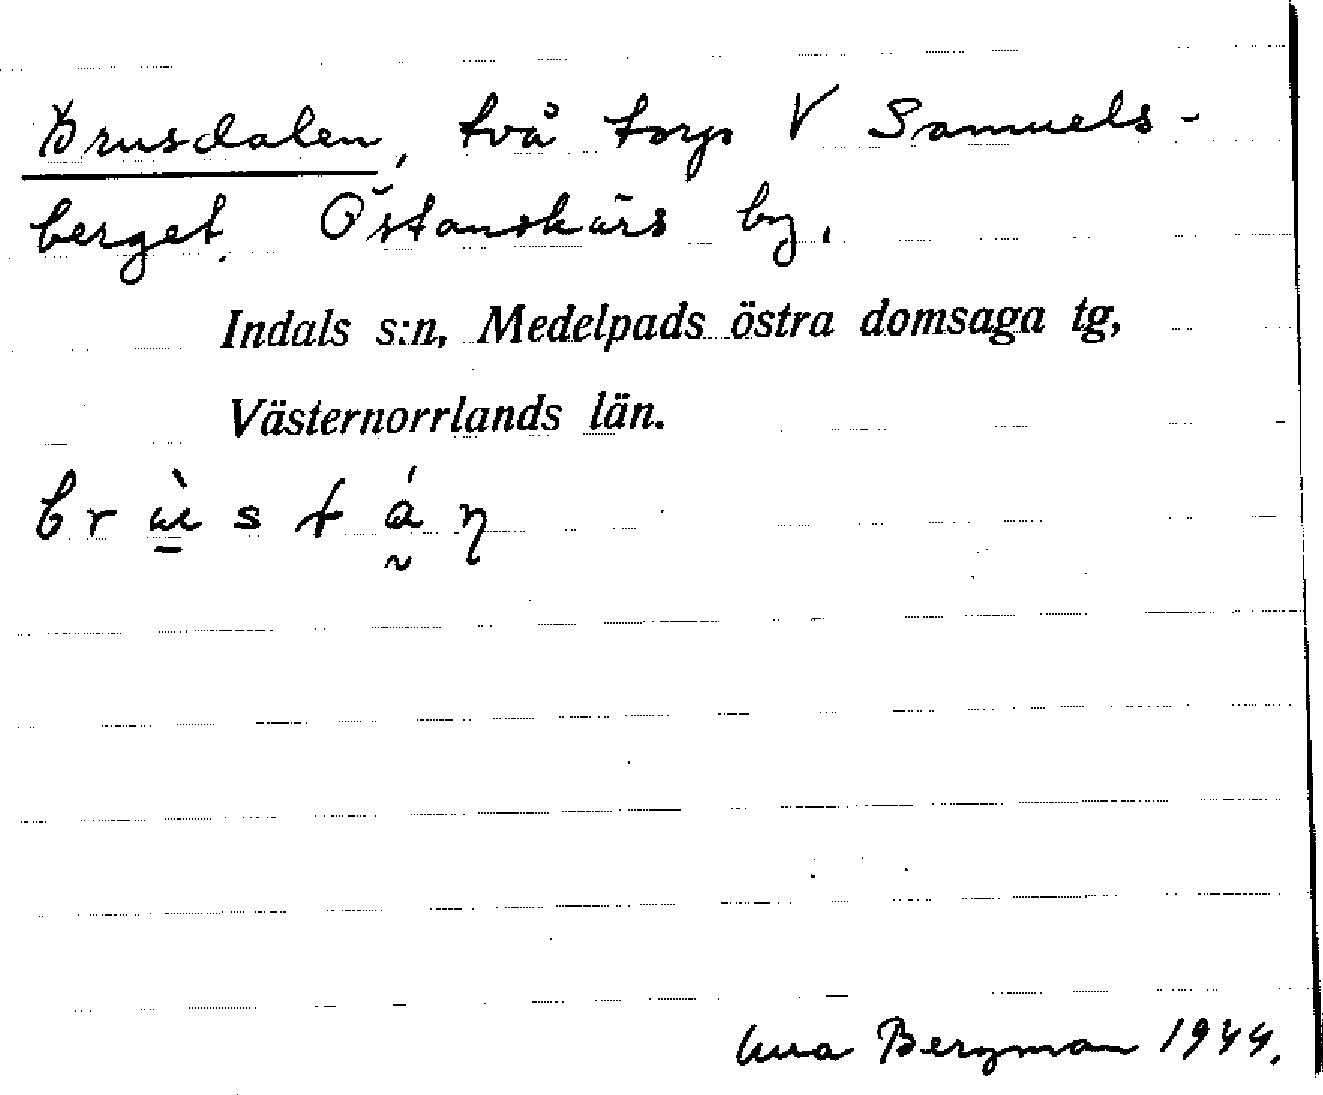 Brusdalen, två torp V Samuels-
berget. Östanskärs by.
Indals s:n, Medelpads östra domsaga tg,
Västernorrlands län.
Bergman 1944.